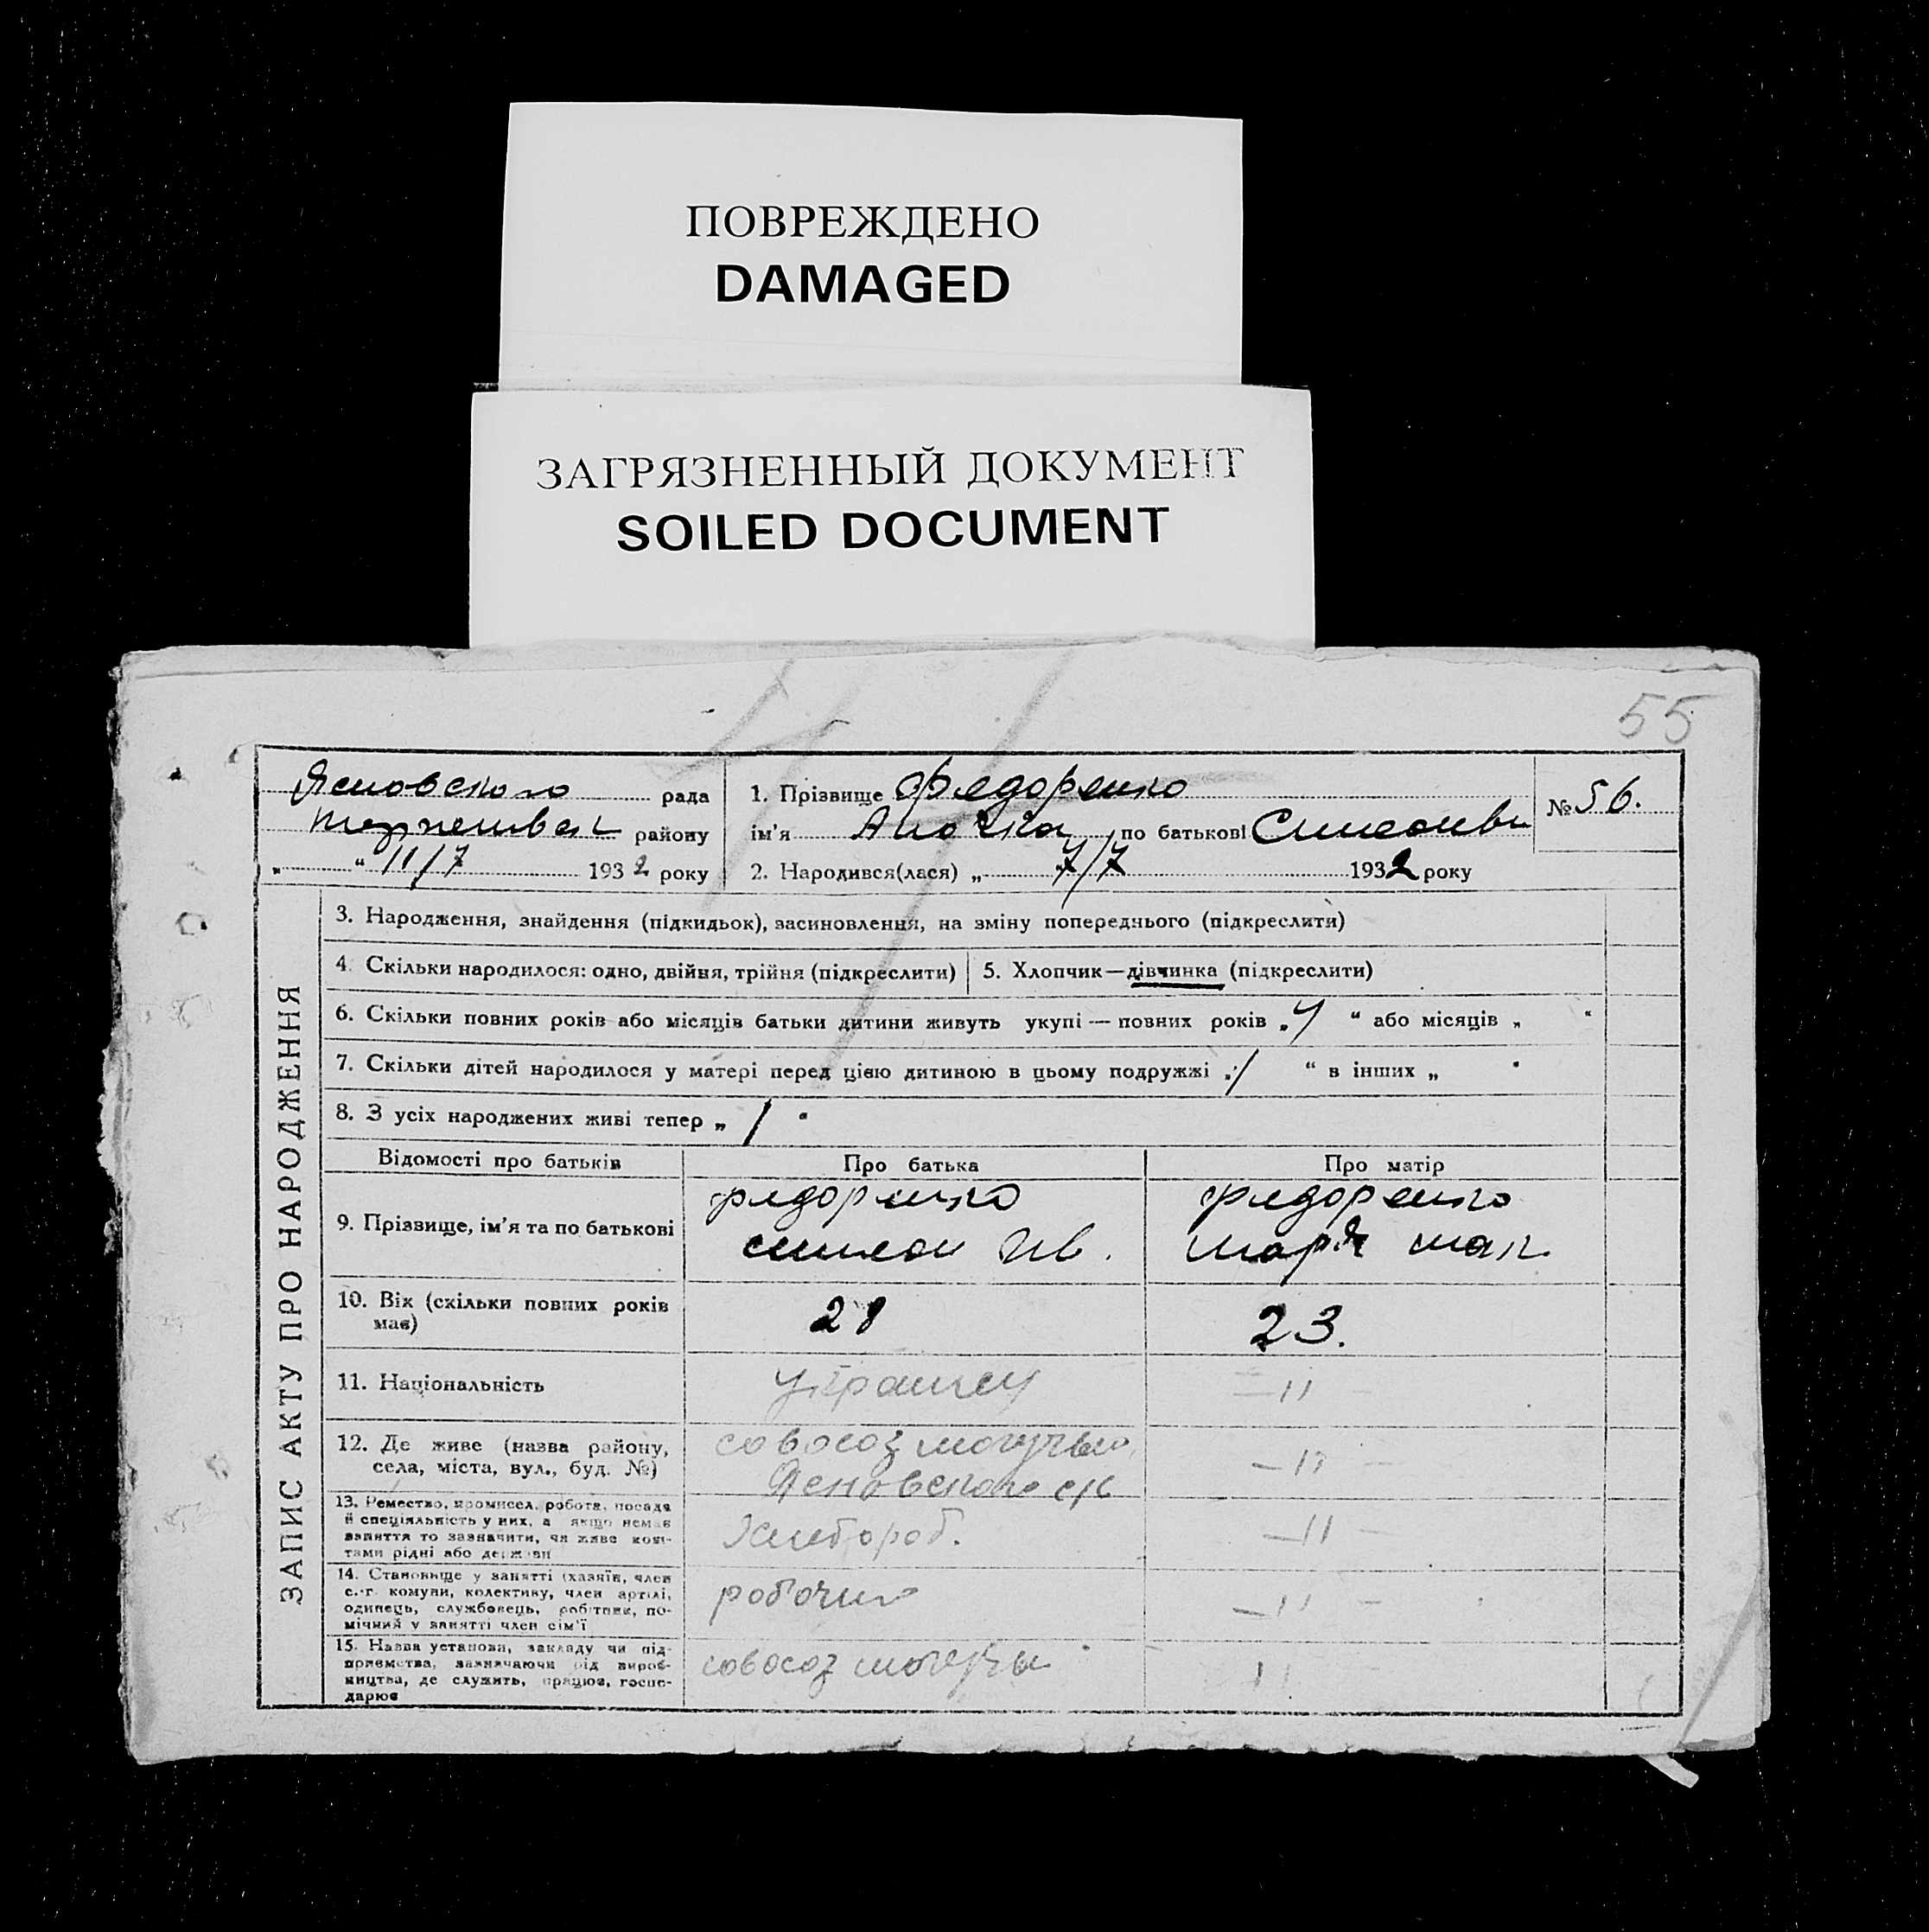 ПОВРЕЖДЕНО
DAMAGED
ЗАГРЯЗНЕННЫЙ ДОКУМЕНТ
SOILED DOCUMENT
55
Ясиовского рада
району
„ “ 11/7 1932 року
1. Прізвище Федоренко
ім'я по батькові Симеонвн
2. Народився(лася) „ 7/7 1932 року
№ 56.
ЗАПИС АКТУ ПРО НАРОДЖЕННЯ
3. Народження, знайдення (підкидьок), засиновлення, на зміну попереднього (підкреслити)
4. Скільки народилося: одно, двійня, трійня (підкреслити)
5. Хлопчик—дівчинка (підкреслити)
6. Скільки повних років або місяців батьки дитини живуть укупі — повних років „ 4 “ або місяців „ “
7. Скільки дітей народилося у матері перед цією дитиною в цьому подружжі „ 1 “ в інших „ “
8. З усіх народжених живі тепер „ 1 “
Відомості про батьків
Про батька
Про матір
9. Прізвище, ім'я та по батькові
федоренко
симеон Ив.
федоренко
мария мак.
10. Вік (скільки повних років
має)
28
23.
11. Національність
українец
—11—
12. Де живе (назва району,
села, міста, вул., буд. №)
совхоз
с/с
—11—
13. Ремество, промисел, робота, посада
й спеціяльність у них, а якщо немає
заняття то зазначити, чи живе кош-
тами рідні або держави
Хлебороб.
—11—
14. Становище у занятті (хазяїн, член
с.-г. комуни, колективу, член артілі,
одинець, службовець, робітник, по-
мічний у занятті член сім'ї
робочий
—11—
15. Назва установи, закладу чи під-
приємства, зазначаючи рід вироб-
ництва, де служить, працює, госпо-
дарює
совхоз
11